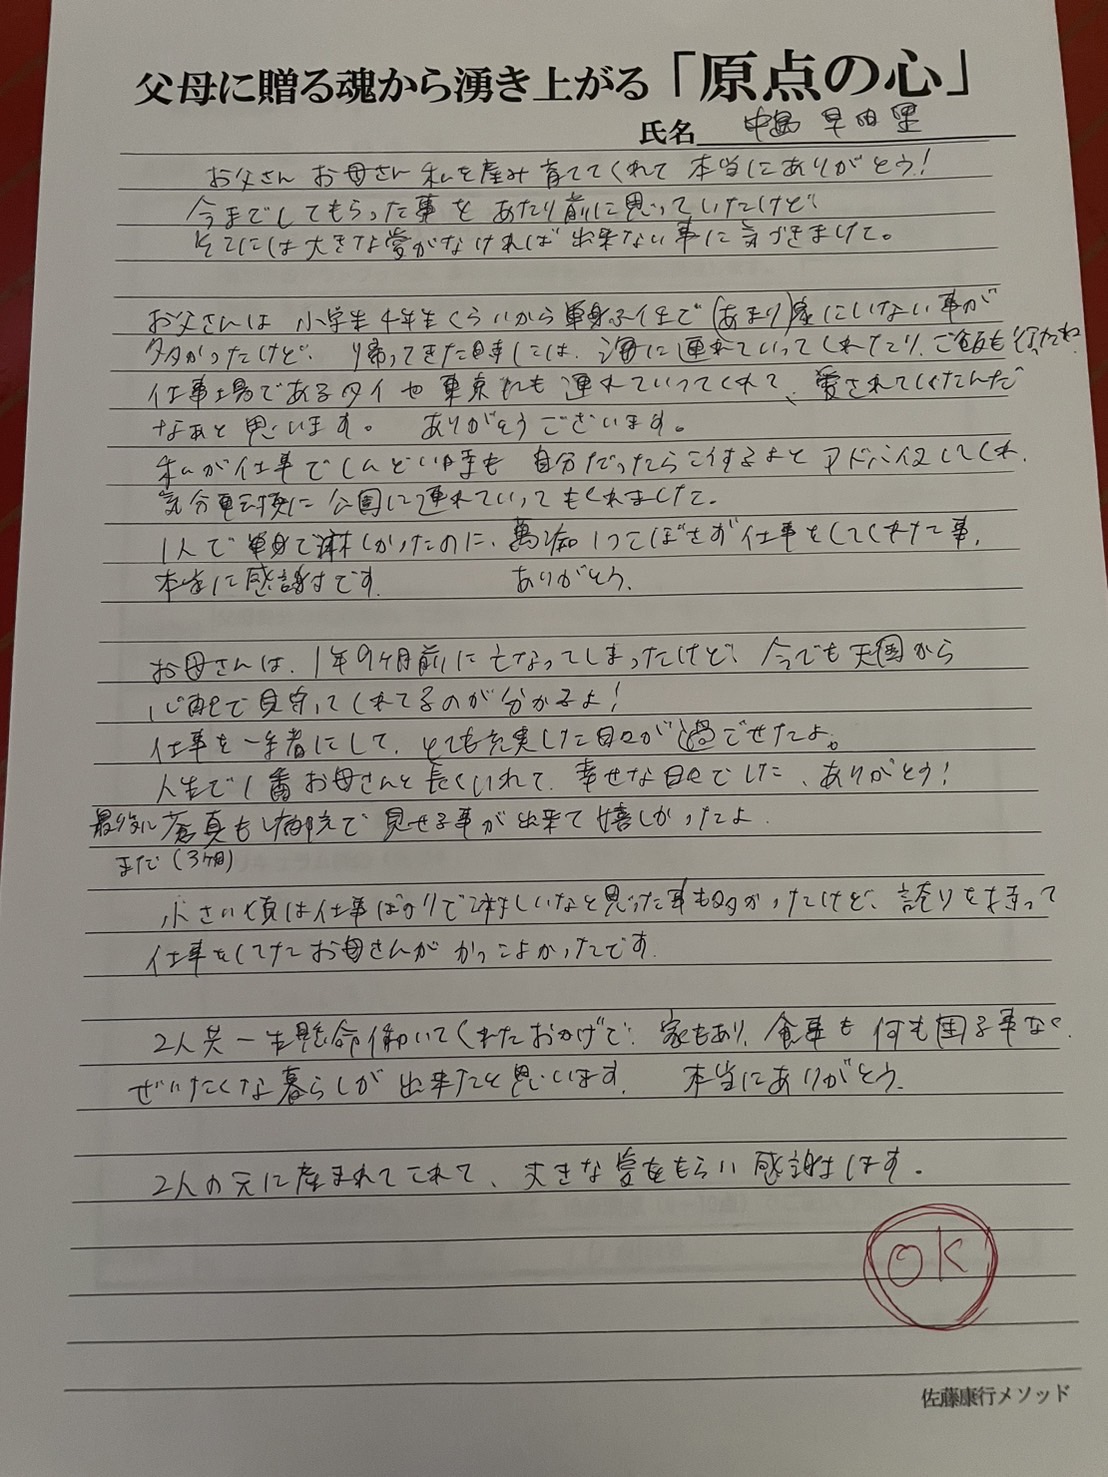 父母に贈る魂から湧き上がる「原点の心」
氏名 中島 早由里
お父さん お母さん 私を産み育ててくれて 本当にありがとう!
今までしてもらった事を あたり前に思っていたけど、
そこには大きな愛がなければ 出来ない事に気づきました。
お父さんは 小学生4年生くらいから単身ふ任で(あまり)家にいない事が
多かったけど、帰ってきた時には、海に連れていってくれたり、ご飯も行ったね
仕事場であるタイや東京にも連れていってくれて、愛されてくたんだ
なぁと思います。 ありがとうございます。
私が仕事でしんどい時も 自分だったらこうするよと アドバイスしてくれ、
気分転換に 公園に連れていってもくれました。
1人で単身で淋しかったのに、愚痴1つこぼさず仕事をしてくれた事、
本当に感謝です。 ありがとう。
お母さんは、1年9ヶ月前に亡なってしまったけど、今でも天国から
心配で見守ってくれてるのが分かるよ!
仕事を一緒にして、とても充実した日々が過ごせたよ。
人生で1番お母さんと長くいれて、幸せな日々でした、ありがとう!
最後に 蒼真も病院で見せる事が出来て嬉しかったよ。
まだ(3ヶ月)
小さい頃は仕事ばかりで淋しいなと思った事も多かったけど、誇りを持って
仕事をしてたお母さんが かっこよかったです。
2人共一生懸命働いてくれたおかげで、家もあり、食事も何も困る事なく
ぜいたくな暮らしが出来たと思います。 本当にありがとう。
2人の元に産まれてこれて、大きな愛をもらい感謝します。
OK
佐藤康行メソッド